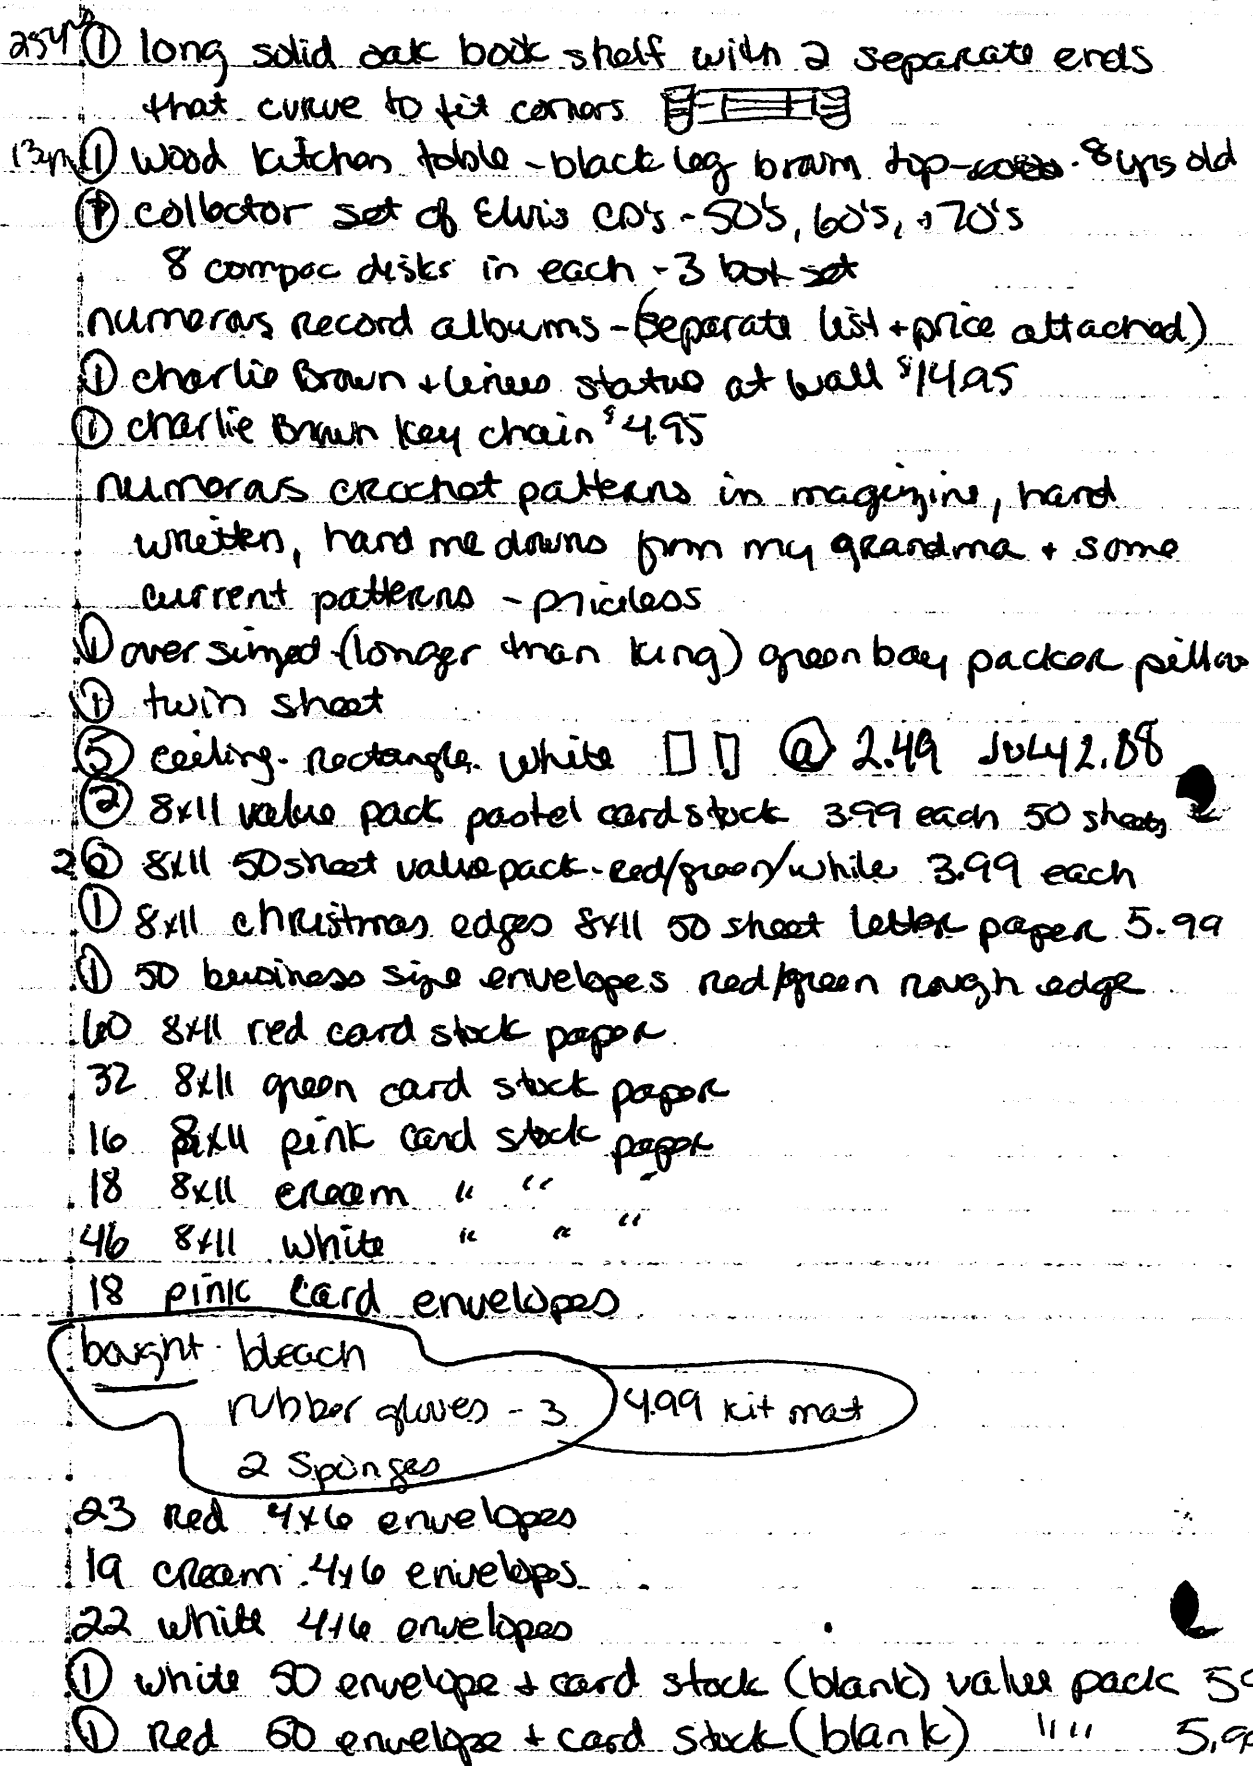 25yrs ① long solid oak book shelf with 2 separate ends
that curve to fit corners
13yr ① wood kitchen table - black leg brown top - 8 yrs old
① collector set of Elvis CD's - 50's, 60's, + 70's
8 compac disks in each - 3 box set
numerous record albums - (separate list + price attached)
① charlie Brown + Linus statue at wall $14.95
① charlie Brown key chain $4.95
numerous crochet patterns in magizine, hand
written, hand me downs from my grandma + some
current patterns - priceless
① over sized (longer than king) green bay packer pillow
① twin sheet
⑤ ceiling - rectangle - white @ 2.49 July 2.08
② 8x11 value pack pastel card stock 3.99 each 50 sheets
2 8x11 50 sheet value pack - red/green/while 3.99 each
① 8x11 christmas edges 8x11 50 sheet letter paper 5.99
① 50 business size envelopes red/green rough edge
60 8x11 red card stock paper
32 8x11 green card stock paper
16 8x11 pink card stock paper
18 8x11 cream " " "
46 8x11 white " " "
18 pink card envelopes
bought - bleach
rubber gloves - 3 4.99 kit mat
2 Sponges
23 red 4x6 envelopes
19 cream 4x6 envelops
22 white 4x6 envelopes
① white 50 envelope + card stock (blank) value pack 5.9
① Red 50 envelope + card stock (blank) " " 5.9